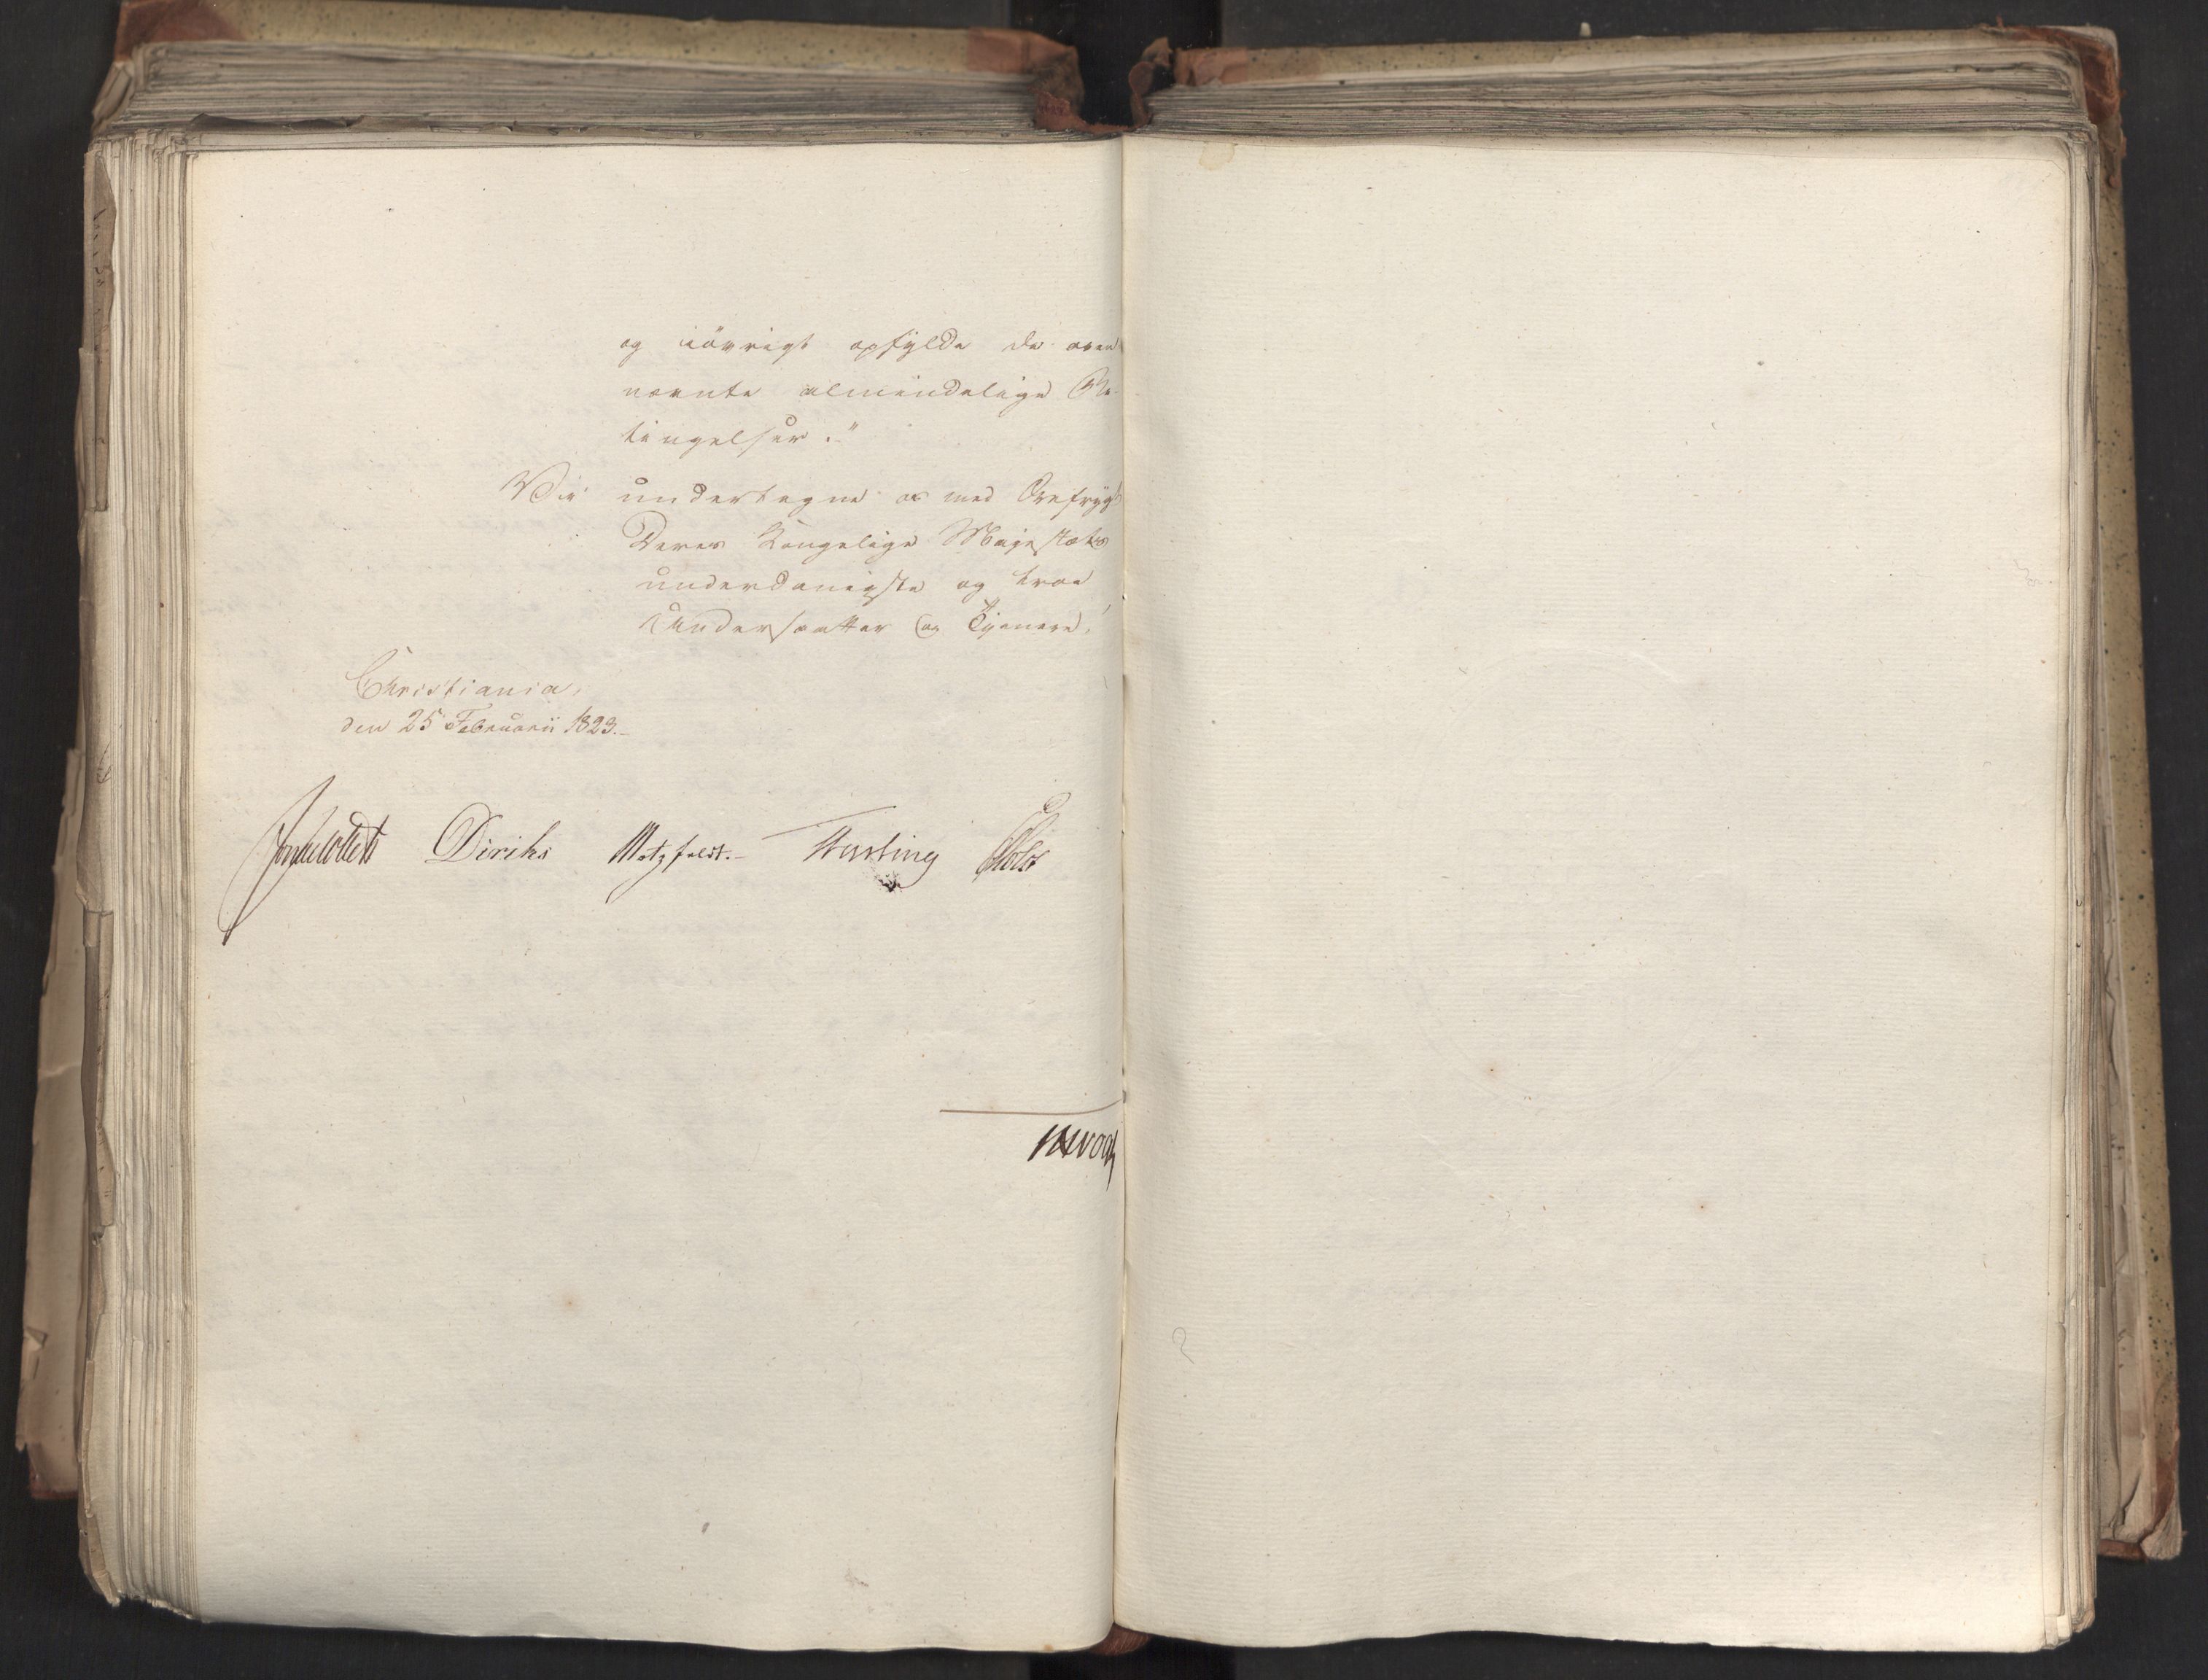 og iövrigt opfylde de oven
nævnte almindelige Be-
tingelser."
Vi undertegne os med Ærefrygt
Deres Kongelige Majestæts
underdanigste og troe
Undersaatter og Tjenere,
Christiania,
den 25 Februarii 1823.
Diriks Motzfeldt. Holst